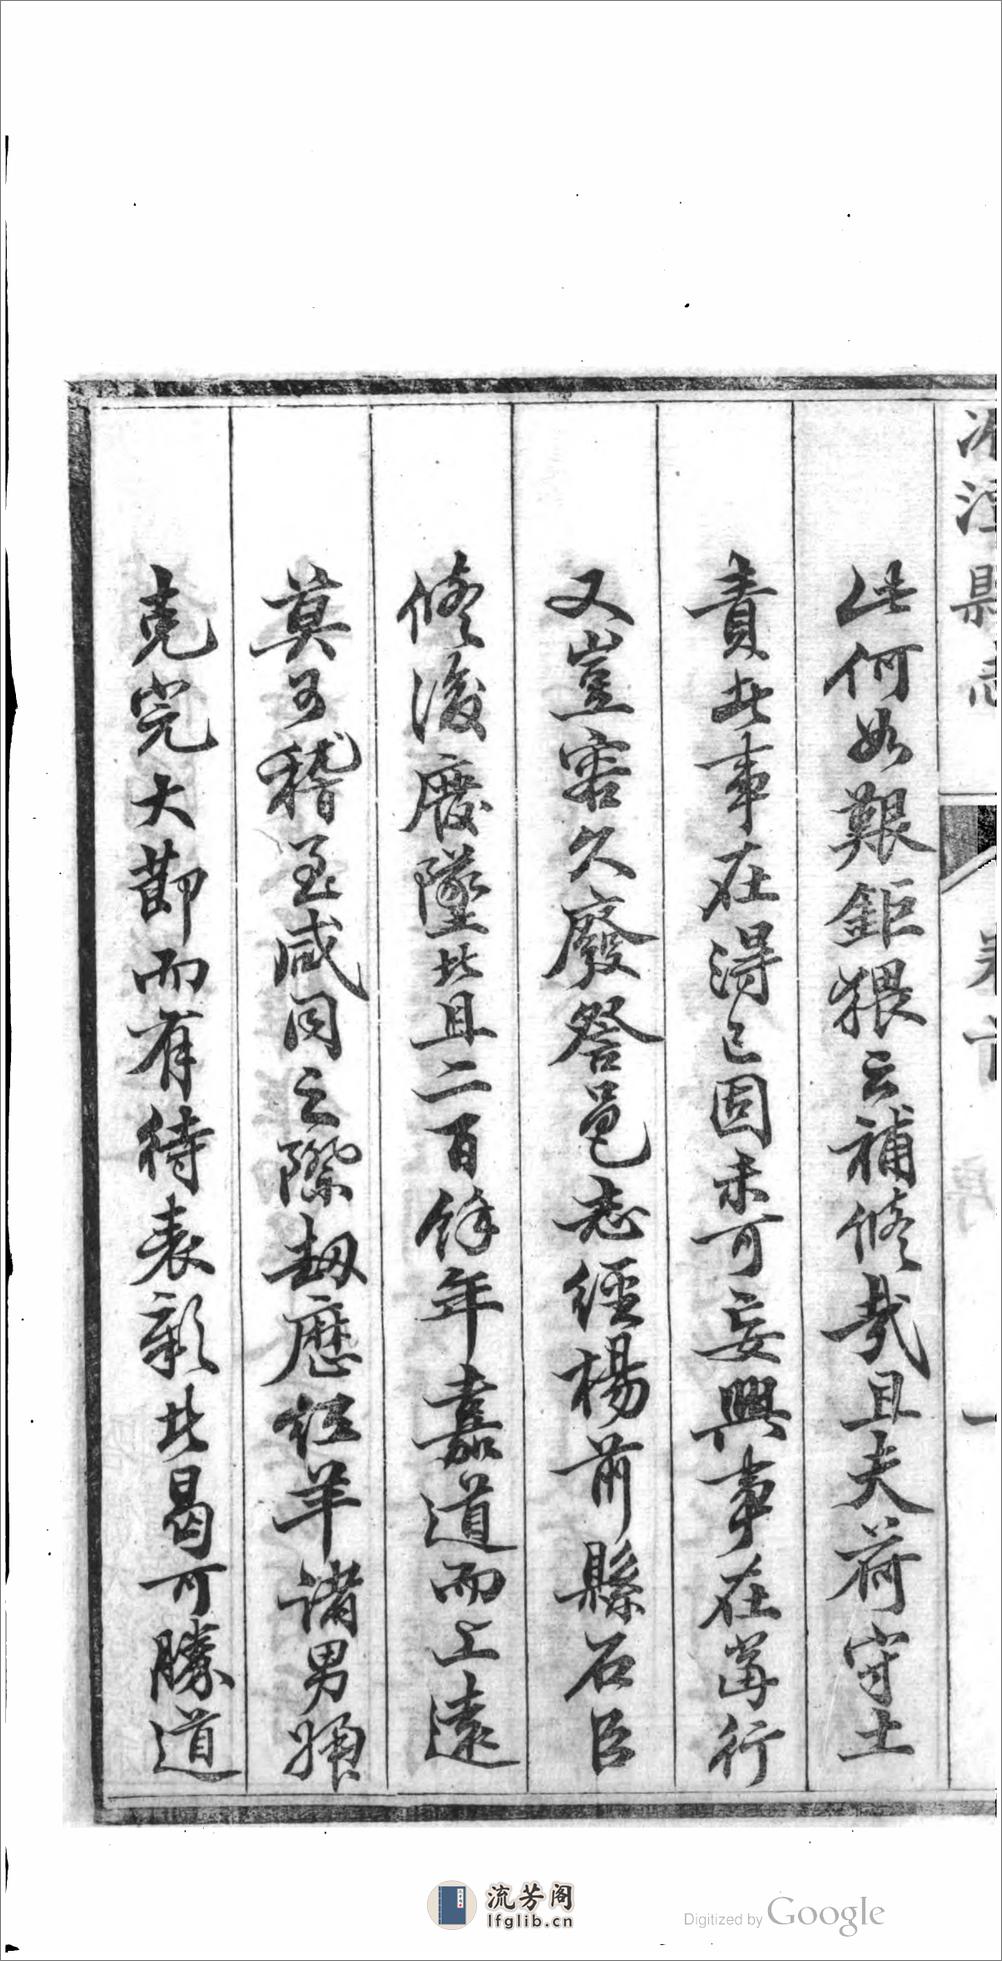 涇縣志
卷首
序
一
此何如艱鉅猥云補修哉且夫荷守土
責此事在得已固未可妄興事在當行
又豈容久廢答邑志經楊前縣石臣
修後廢墜此且二百餘年嘉道而上遠
莫可稽至咸同之際劫歷紅羊諸男婦
克完大節而有待表彰此曷可勝道
流芳阁
lfglib.cn
Digitized by Google